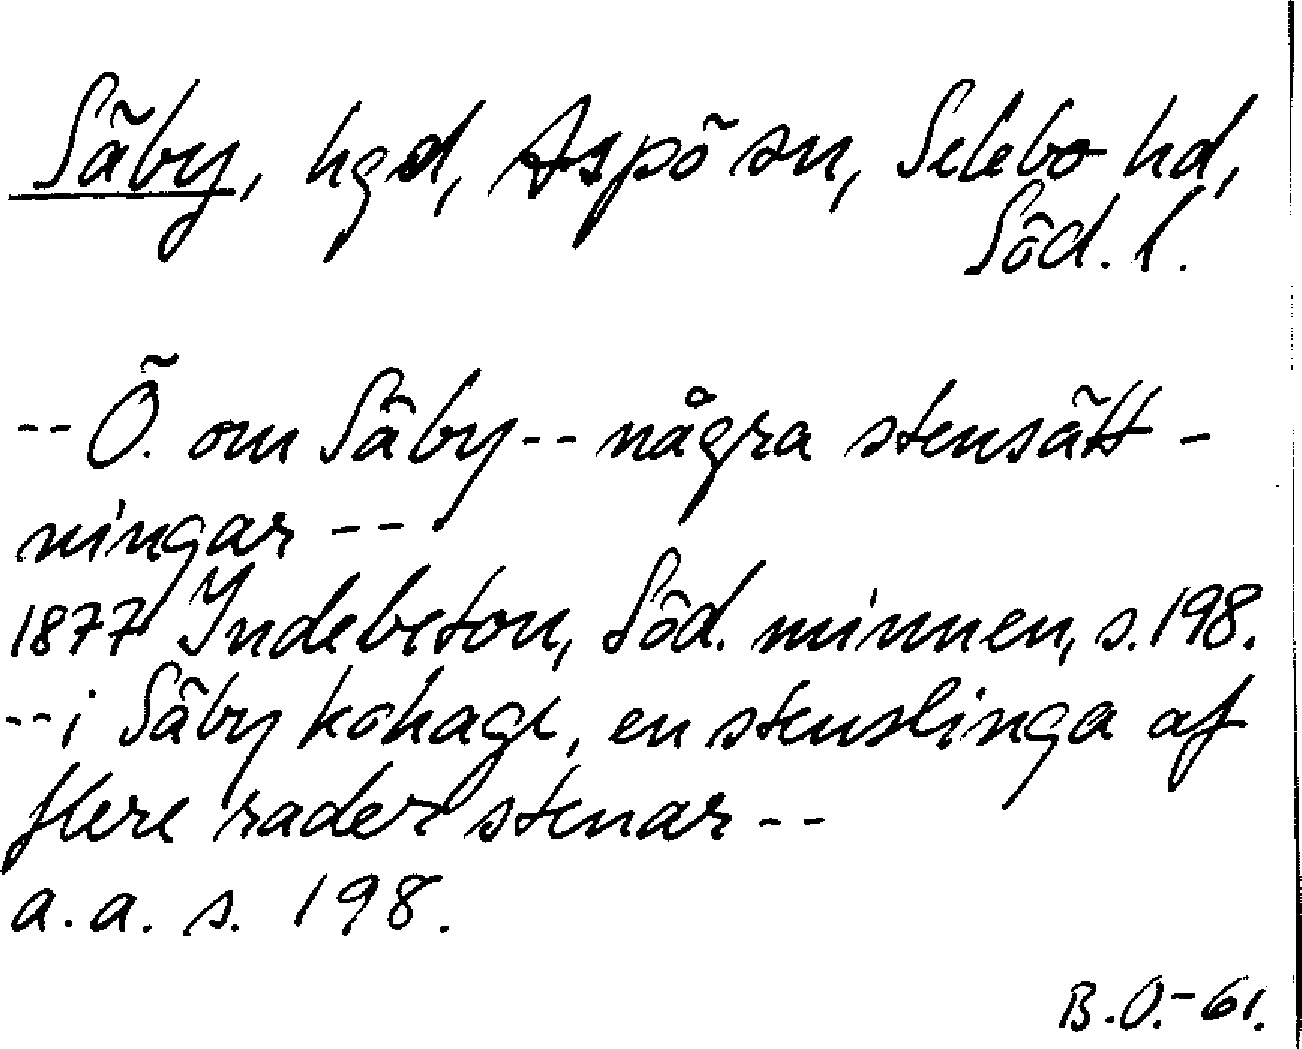 Säby, hgd, Aspö sn, Selebo hd,
Söd. l.
-- Ö. om Säby -- några stensätt-
ningar --
1877 Indebetou, Söd. minnen, s. 198.
-- i Säby kohage, en stenslinga af
flere rader stenar --
a. a. s. 198.
B. O. - 61.